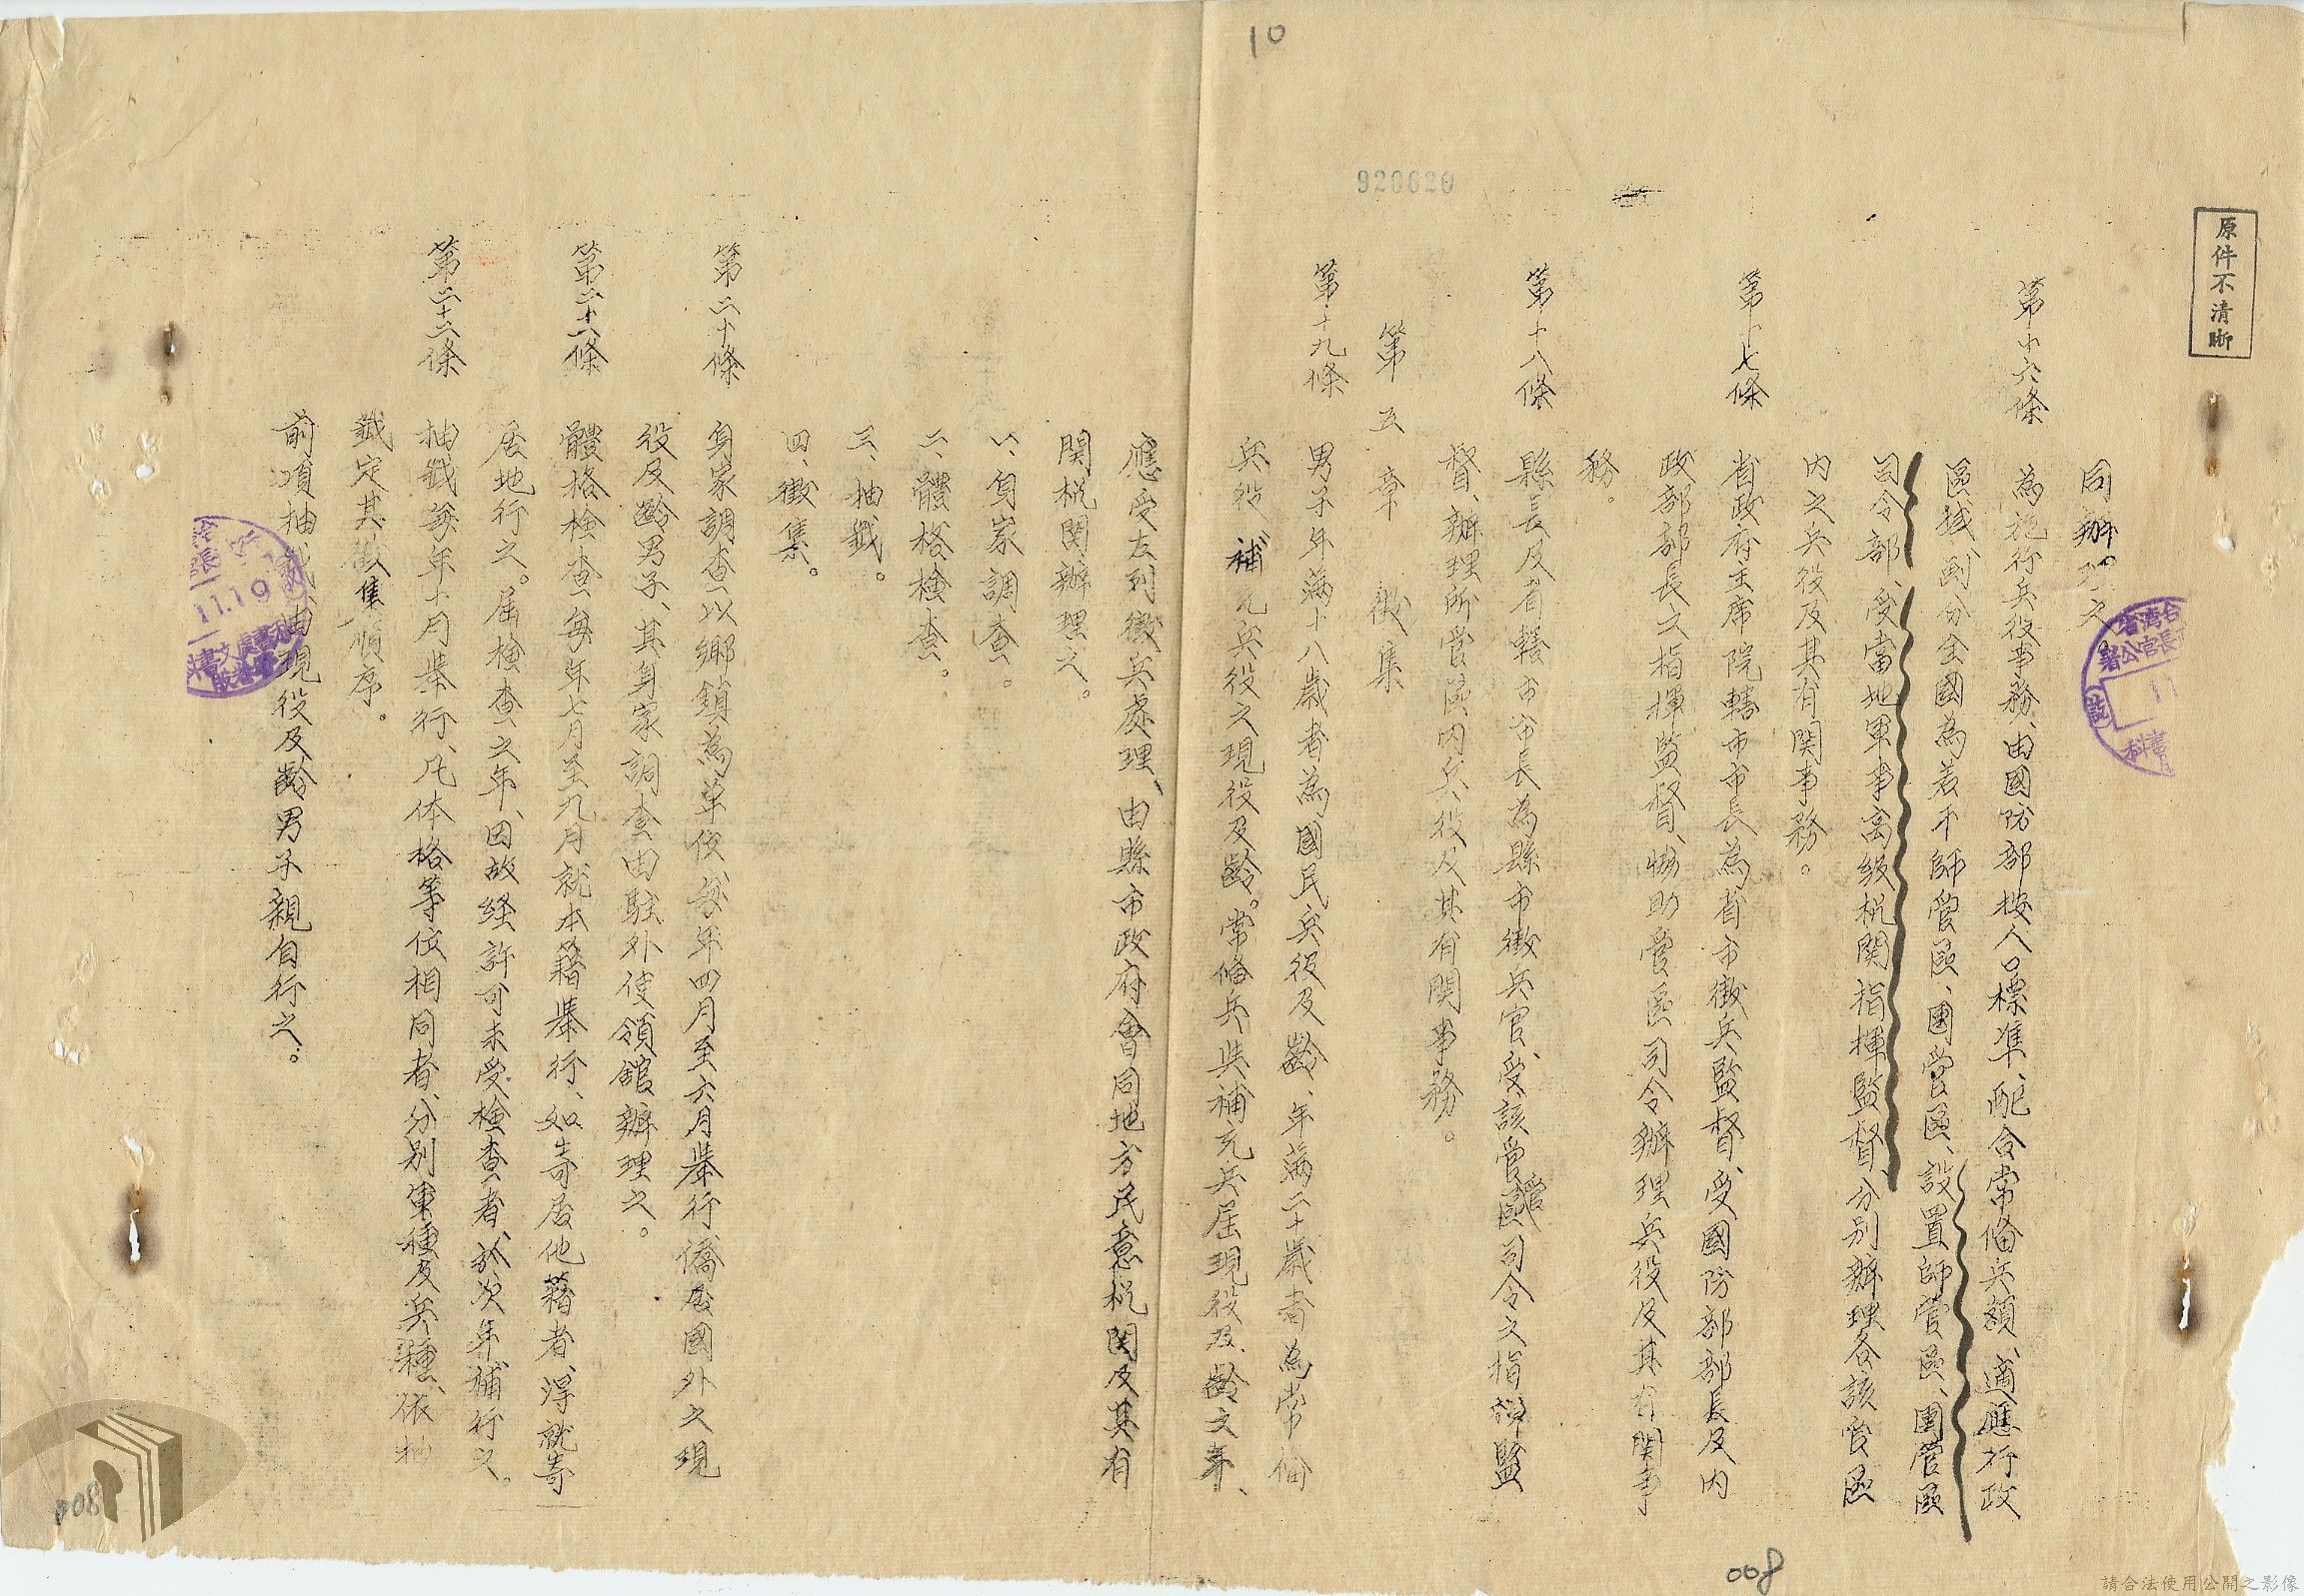 10
920620
原件不清晰
同辦理之。
第十六條 為施行兵役事務、由國防部按人口標準、配合常備兵額、適應行政
區域、劃分全國為若干師管區、團管區、設置師管區、團管區
司令部、受當地軍事高級机関指揮監督、分別辦理各該管區
内之兵役及其有関事務。
第十七條 省政府主席院轄市市長為省市徵兵監督、受國防部部長及内
政部部長之指揮監督、協助管區司令辦理兵役及其有関事
務。
第十八條 縣長及省轄市市長為縣市徵兵官、受該管團管區司令之指揮監
督、辦理所管區内兵役及其有関事務。
第五章 徵集
第十九條 男子年滿十八歲者為國民兵役及齡、年滿二十歲者為常備
兵役、補充兵役之現役及齡。常備兵與補充兵屆現役及齡之年、
應受左列徵兵處理、由縣市政府會同地方民意机関及其有
関机関辦理之。
一、身家調查。
二、體格檢查。
三、抽籤。
四、徵集。
第二十條 身家調查以鄉鎮為單位、每年四月至六月舉行、僑居國外之現
役及齡男子、其身家調查由駐外使領館辦理之。
第二十一條 體格檢查每年七月至九月就本籍舉行、如寄居他籍者、得就寄
居地行之。屆檢查之年、因故経許可未受檢查者、於次年補行之。
第二十二條 抽籤每年十月舉行、凡体格等位相同者、分別軍種及兵種、依抽
籤定其徵集順序。
前項抽籤、由現役及齡男子親自行之。
11.19
008
008
請合法使用公開之影像